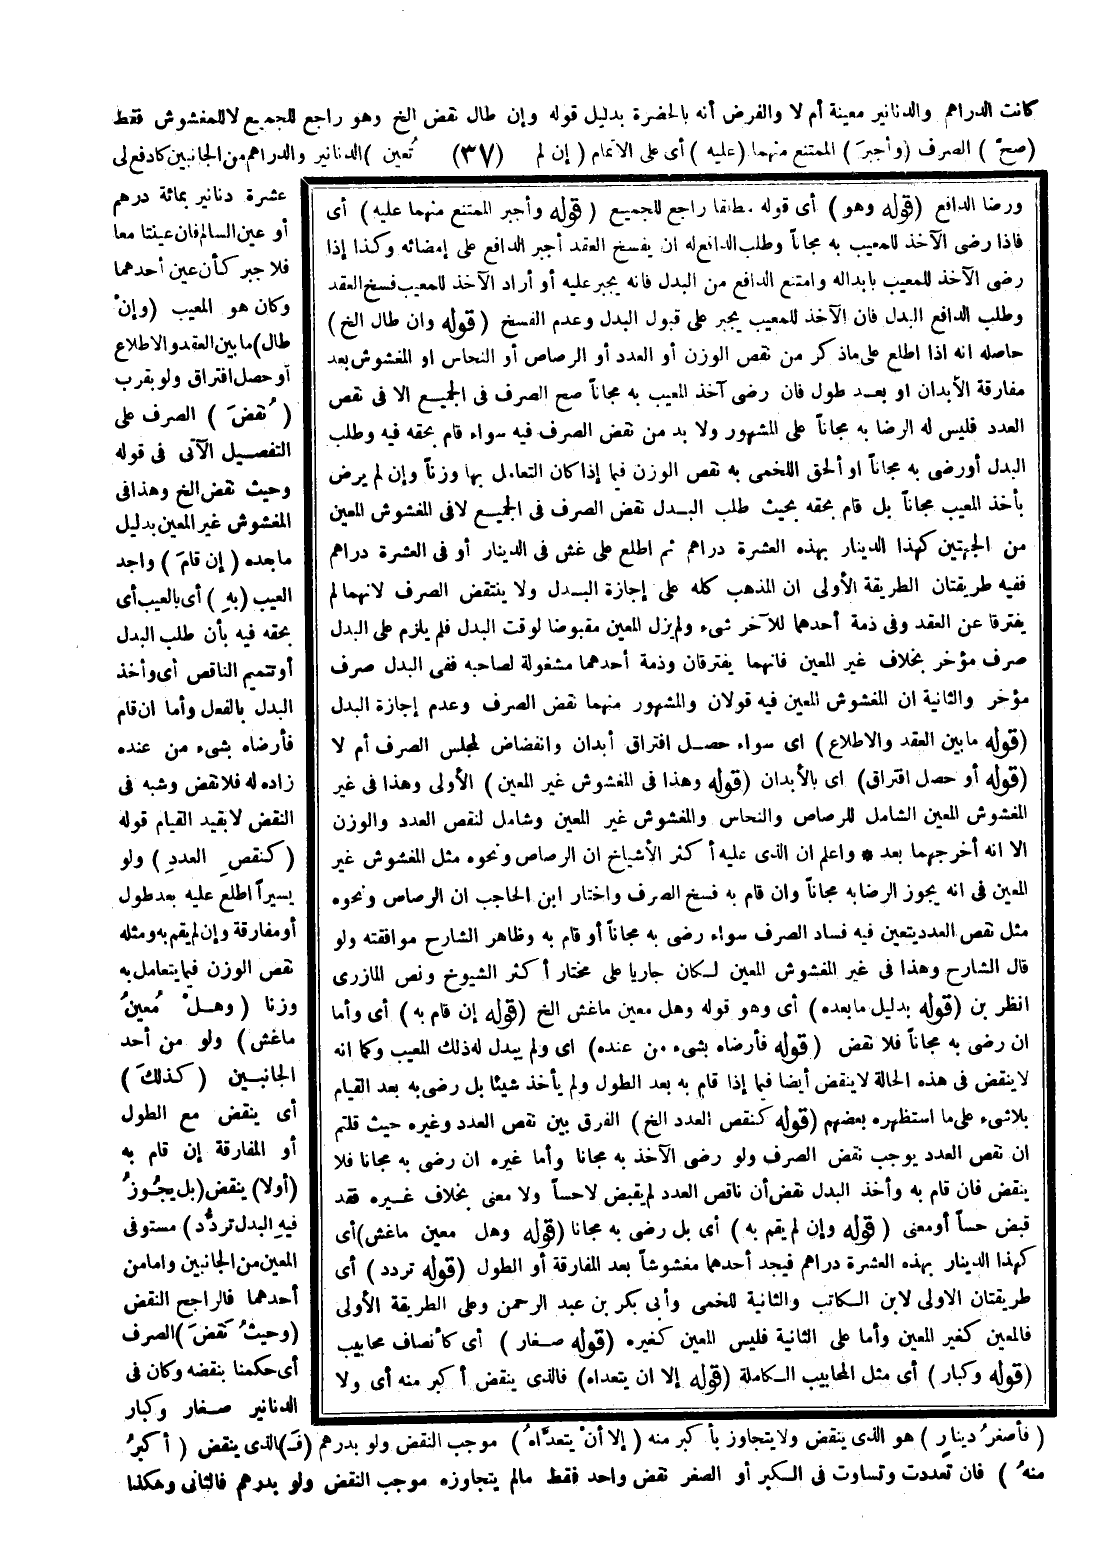 كانت الدراهم والدنانير معينة أم لا والفرض أنه بالحضرة بدليل قوله وإن طال نقض الخ وهو راجع للجميع لا للمغشوش فقط
(صحّ) الصرف (وأجبرَ) الممتنع منهما (عليه) أى على الاتمام (إن لم (٣٧) تُعين) الدنانير والدراهم من الجانبين كادفع لى
عشرة دنانير بمائة درهم
أو عين السالم فان عينتا معا
فلا جبر كأن عين أحدهما
وكان هو المعيب (وإنْ
طال) ما بين العقد والاطلاع
أو حصل افتراق ولو بقرب
(نُقضَ) الصرف على
التفصيل الآتى فى قوله
وحيث نقض الخ وهذا فى
المغشوش غير المعين بدليل
ما بعده (إن قامَ) واجد
العيب (بهِ) أى بالعيب أى
بحقه فيه بأن طلب البدل
أو تتميم الناقص أى وأخذ
البدل بالفعل وأما ان قام
فأرضاه بشىء من عنده
زاده له فلا نقض وشبه فى
النقض لا بقيد القيام قوله
(كنقصِ العددِ) ولو
يسيراً اطلع عليه بعد طول
أو مفارقة وإن لم يقم به ومثله
نقص الوزن فيما يتعامل به
وزنا (وهلْ مُعينُ
ماغش) ولو من أحد
الجانبين (كذلكَ)
أى ينقض مع الطول
أو المفارقة إن قام به
(أولا) ينقض (بل يجُوزُ
فيهِ البدل تردُّد) مستوفى
المعين من الجانبين وامامن
أحدهما فالراجح النقض
(وحيثُ نُقضَ) الصرف
أى حكمنا بنقضه وكان فى
الدنانير صغار وكبار
ورضا الدافع (قوله وهو) أى قوله مطلقا راجع للجميع (قوله وأجبر الممتنع منهما عليه) أى
فاذا رضى الآخذ للمعيب به مجاناً وطلب الدافع له ان يفسخ العقد أجبر الدافع على إمضائه وكذا إذا
رضى الآخذ للمعيب بابداله وامتنع الدافع من البدل فانه يجبر عليه أو أراد الآخذ للمعيب فسخ العقد
وطلب الدافع البدل فان الآخذ للمعيب يجبر على قبول البدل وعدم الفسخ (قوله وان طال الخ)
حاصله انه اذا اطلع على ماذكر من نقص الوزن أو العدد أو الرصاص أو النحاس او المغشوش بعد
مفارقة الأبدان او بعد طول فان رضى آخذ المعيب به مجاناً صح الصرف فى الجميع الا فى نقص
العدد فليس له الرضا به مجاناً على المشهور ولا بد من نقض الصرف فيه سواء قام بحقه فيه وطلب
البدل أورضى به مجاناً او ألحق اللخمى به نقص الوزن فيما إذا كان التعامل بها وزناً وإن لم يرض
بأخذ المعيب مجاناً بل قام بحقه بحيث طلب البدل نقض الصرف فى الجميع لا فى المغشوش المعين
من الجهتين كهذا الدينار بهذه العشرة دراهم ثم اطلع على غش فى الدينار أو فى العشرة دراهم
ففيه طريقتان الطريقة الأولى ان المذهب كله على إجازة البدل ولا ينتقض الصرف لانهما لم
يفترقا عن العقد وفى ذمة أحدهما للآخر شىء ولم يزل المعين مقبوضا لوقت البدل فلم يلزم على البدل
صرف مؤخر بخلاف غير المعين فانهما يفترقان وذمة أحدهما مشغولة لصاحبه ففى البدل صرف
مؤخر والثانية ان المغشوش المعين فيه قولان والمشهور منهما نقض الصرف وعدم إجازة البدل
(قوله مابين العقد والاطلاع) اى سواء حصل افتراق أبدان وانفضاض لمجلس الصرف أم لا
(قوله أو حصل افتراق) اى بالأبدان (قوله وهذا فى المغشوش غير المعين) الأولى وهذا فى غير
المغشوش المعين الشامل للرصاص والنحاس والمغشوش غير المعين وشامل لنقص العدد والوزن
الا انه أخرجهما بعد * واعلم ان الذى عليه أكثر الأشياخ ان الرصاص ونحوه مثل المغشوش غير
المعين فى انه يجوز الرضا به مجاناً وان قام به فسخ الصرف واختار ابن الحاجب ان الرصاص ونحوه
مثل نقص العدد يتعين فيه فساد الصرف سواء رضى به مجاناً أو قام به وظاهر الشارح موافقته ولو
قال الشارح وهذا فى غير المغشوش المعين لكان جاريا على مختار أكثر الشيوخ ونص المازرى
انظر بن (قوله بدليل مابعده) أى وهو قوله وهل معين ماغش الخ (قوله إن قام به) أى وأما
ان رضى به مجاناً فلا نقض (قوله فأرضاه بشىء من عنده) اى ولم يبدل له ذلك المعيب وكما انه
لا ينقض فى هذه الحالة لا ينقض أيضا فيما إذا قام به بعد الطول ولم يأخذ شيئا بل رضى به بعد القيام
بلاشىء على ما استظهره بعضهم (قوله كنقص العدد الخ) الفرق بين نقص العدد وغيره حيث قلتم
ان نقص العدد يوجب نقض الصرف ولو رضى الآخذ به مجانا وأما غيره ان رضى به مجانا فلا
ينقض فان قام به وأخذ البدل نقض أن ناقص العدد لم يقبض لاحساً ولا معنى بخلاف غيره فقد
قبض حساً أو معنى (قوله وإن لم يقم به) أى بل رضى به مجانا (قوله وهل معين ماغش) أى
كهذا الدينار بهذه العشرة دراهم فيجد أحدهما مغشوشاً بعد المفارقة أو الطول (قوله تردد) أى
طريقتان الاولى لابن الكاتب والثانية للخمى وأبى بكر بن عبد الرحمن وعلى الطريقة الأولى
فالمعين كغير المعين وأما على الثانية فليس المعين كغيره (قوله صغار) أى كأنصاف محابيب
(قوله وكبار) أى مثل المحابيب الكاملة (قوله إلا ان يتعداه) فالذى ينقض أكبر منه أى ولا
(فأصغرُ دينارٍ) هو الذى ينقض ولا يتجاوز بأكبر منه (إلا أنْ يتعدَّاهُ) موجب النقض ولو بدرهم (فـ)الذى ينقض (أكبرُ
منهُ) فان تعددت وتساوت فى الكبر أو الصغر نقض واحد فقط مالم يتجاوزه موجب النقض ولو بدرهم فالثانى وهكذا